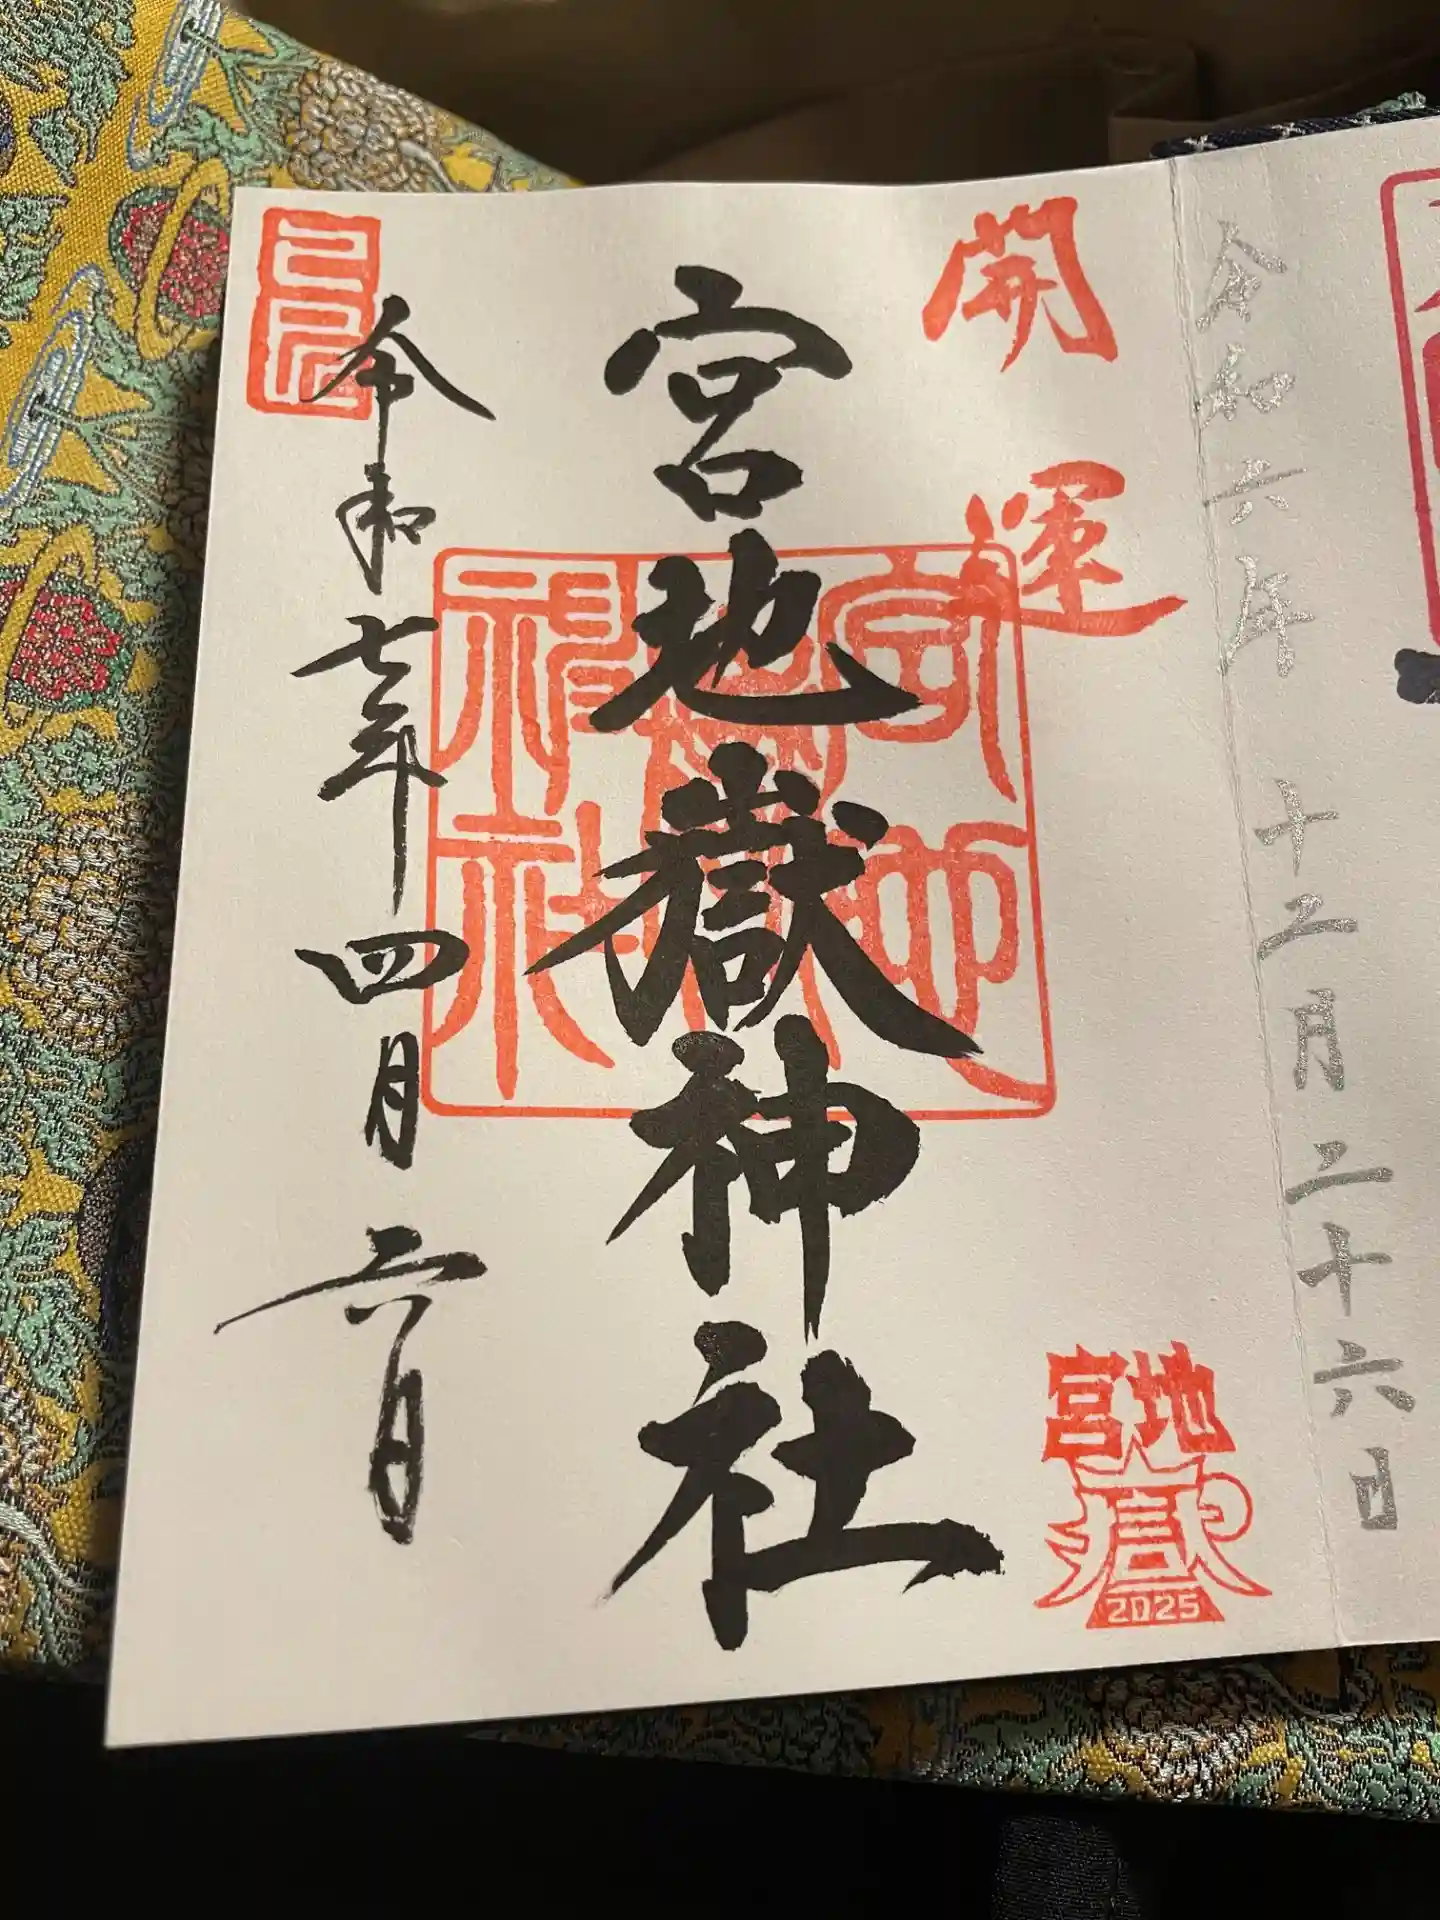 令和六年 十二月二十六日
開運
宮地嶽
2025
宮地嶽神社
乙巳
令和七年四月六日